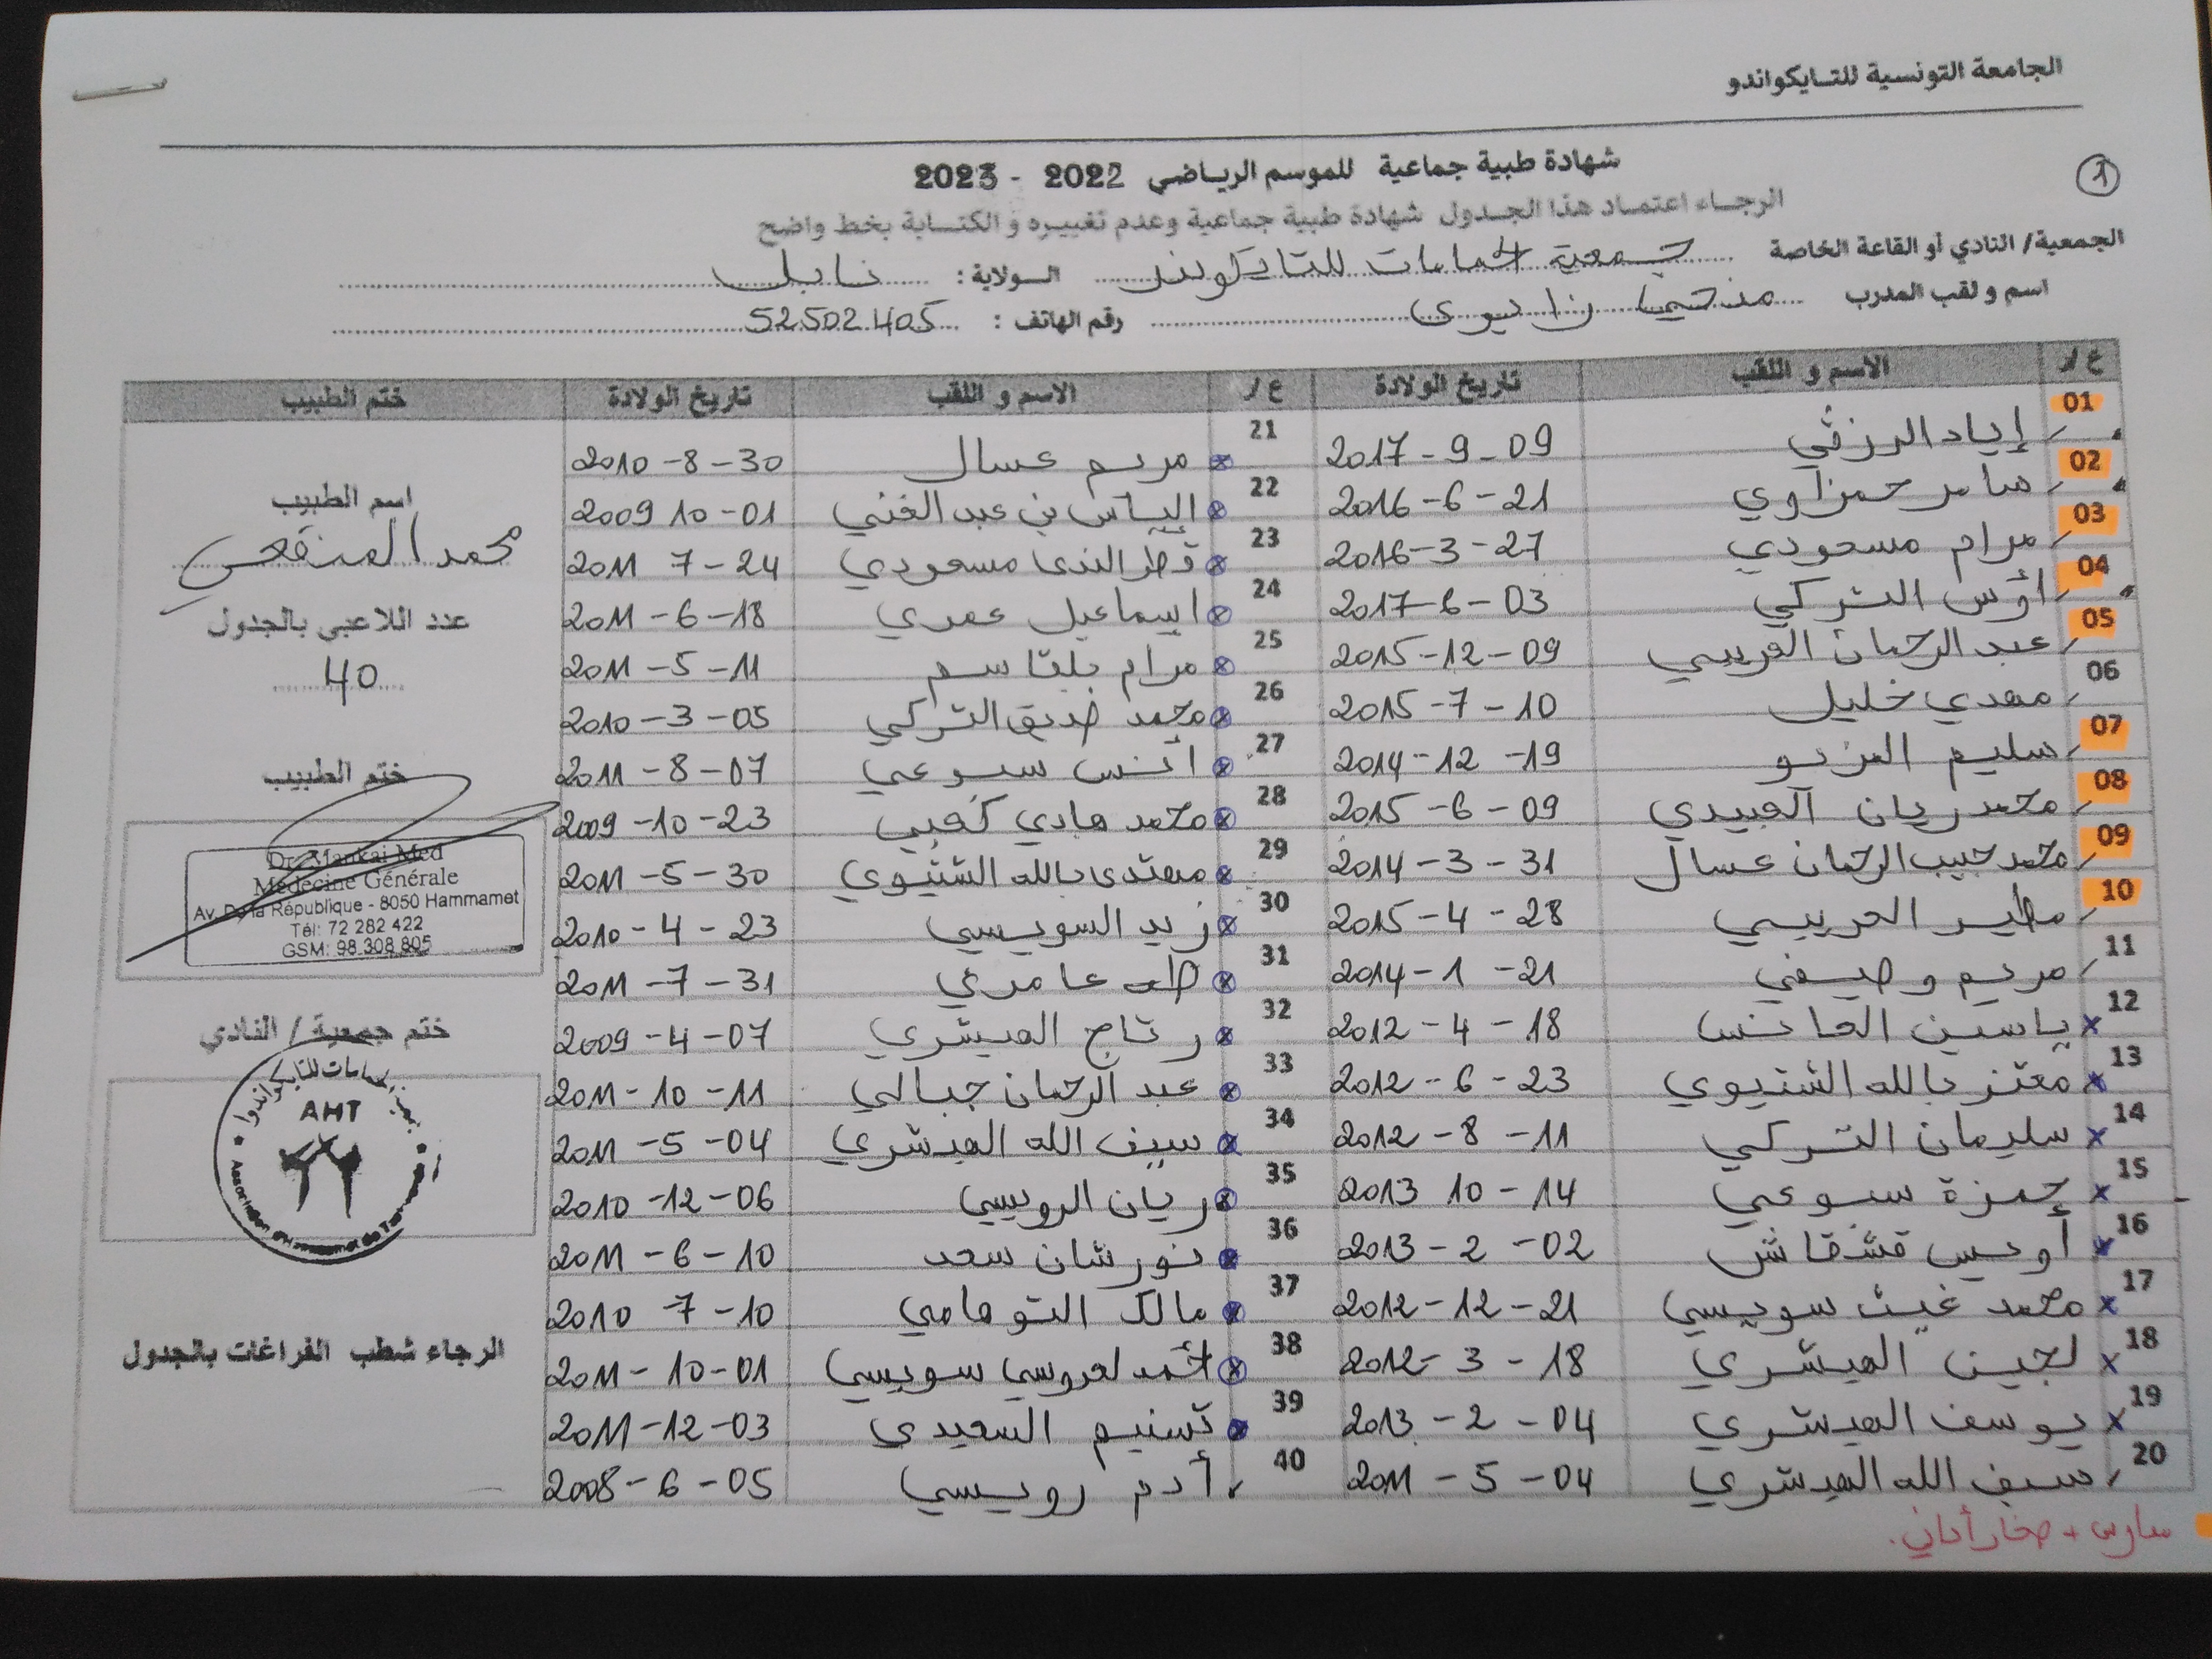 الجامعة التونسية للتايكواندو
1
شهادة طبية جماعية للموسم الرياضي 2022 - 2023
الرجاء اعتماد هذا الجدول شهادة طبية جماعية وعدم تغييره و الكتابة بخط واضح
الجمعية/ النادي أو القاعة الخاصة جمعية الحمامات للتايكوندو الولاية : نابل
اسم و لقب المدرب منجي زاديوى رقم الهاتف : 52.502.405
ع/ر الاسم و اللقب تاريخ الولادة ع/ر الاسم و اللقب تاريخ الولادة ختم الطبيب
01 إياد الرزقي 2017-9-09
02 سامر حمزاوي 2016-6-21
03 مرام مسعودي 2016-3-27
04 أوس التركي 2017-6-03
05 عبد الرحمان الغريبي 2015-12-09
06 مهدي خليل 2015-7-10
07 سليم المزيو 2014-12-19
08 محمد ريان العبيدي 2015-6-09
09 محمد حبيب الرحمان عسال 2014-3-31
10 2015-4-28
11 مريم وصيفي 2014-1-21
12 ياسين العانس 2012-4-18
13 معتز بالله الشتيوي 2012-6-23
14 سليمان التركي 2012-8-11
15 حمزة سبوعي 2013 10-14
16 أويس قشقاش 2013-2-02
17 محمد غيث سويسي 2012-12-21
18 لجين الميشري 2012-3-18
19 يوسف الميشري 2013-2-04
20 سيف الله الميشري 2011-5-04
21 مريم عسال 2010-8-30
22 الياس بن عبد الغني 2009 10-01
23 قطر الندى مسعودي 2011 7-24
24 اسماعيل عمري 2011-6-18
25 مرام بلقاسم 2011-5-11
26 محمد صديق التركي 2010-3-05
27 أنس سبوعي 2011-8-07
28 محمد هادي كعبي 2009-10-23
29 مهتدى بالله الشتيوي 2011-5-30
30 زيد السويسي 2010-4-23
31 طه عامري 2011-7-31
32 رتاج الميشري 2009-4-07
33 عبد الرحمان جبالي 2011-10-11
34 سيف الله الميشري 2011-5-04
35 ريان الرويسي 2010-12-06
36 نورشان سعد 2011-6-10
37 مالك التوهامي 2010 7-10
38 احمد لعروسي سويسي 2011-10-01
39 تسنيم السعيدي 2011-12-03
40 أدم رويسي 2008-6-05
اسم الطبيب
محمد المنقعي
عدد اللاعبي بالجدول
40
ختم الطبيب
Dr. Mankai Med
Médecine Générale
Av. De la République - 8050 Hammamet
Tél: 72 282 422
GSM: 98.308.805
ختم جمعية / النادي
AHT
الرجاء شطب الفراغات بالجدول